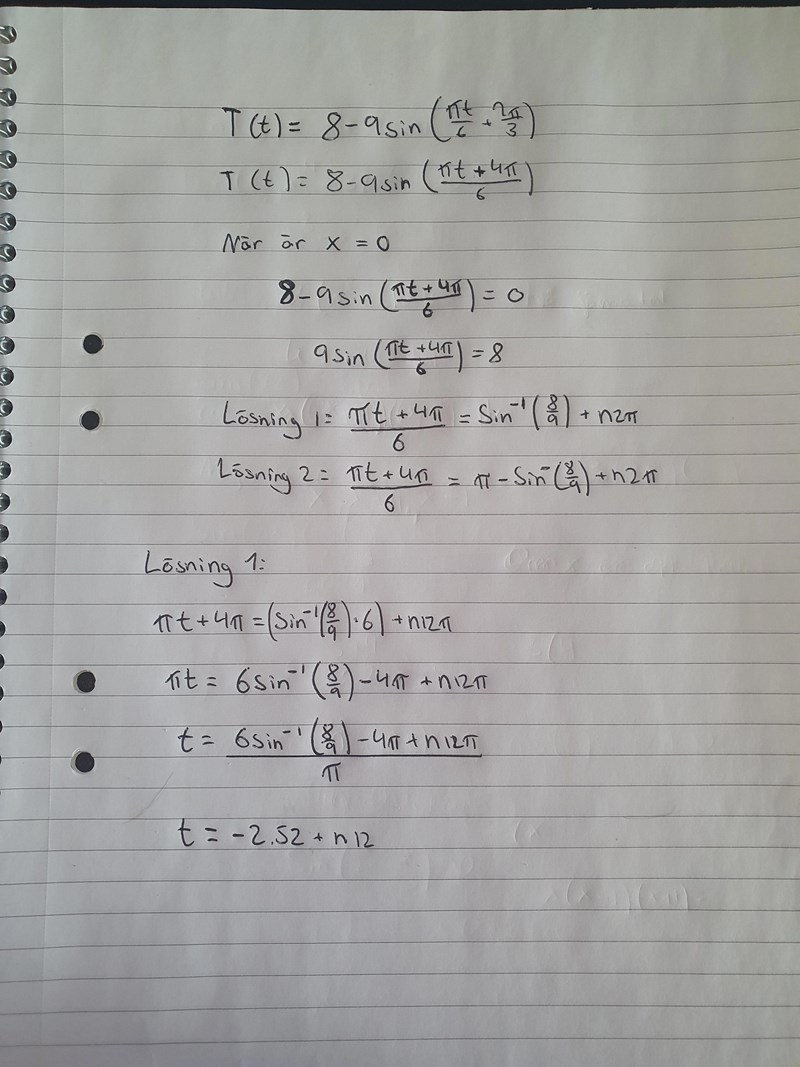 T(t) = 8-9sin(πt/6 + 2π/3)
T(t) = 8-9sin((πt+4π)/6)
När är x = 0
8-9sin((πt+4π)/6) = 0
9sin((πt+4π)/6) = 8
Lösning 1 = (πt+4π)/6 = Sin⁻¹(8/9) + n2π
Lösning 2 = (πt+4π)/6 = π - Sin⁻(8/9) + n2π
Lösning 1:
πt+4π = (Sin⁻¹(8/9)·6) + n12π
πt = 6sin⁻¹(8/9) - 4π + n12π
t = (6sin⁻¹(8/9) - 4π + n12π)/π
t = -2.52 + n12